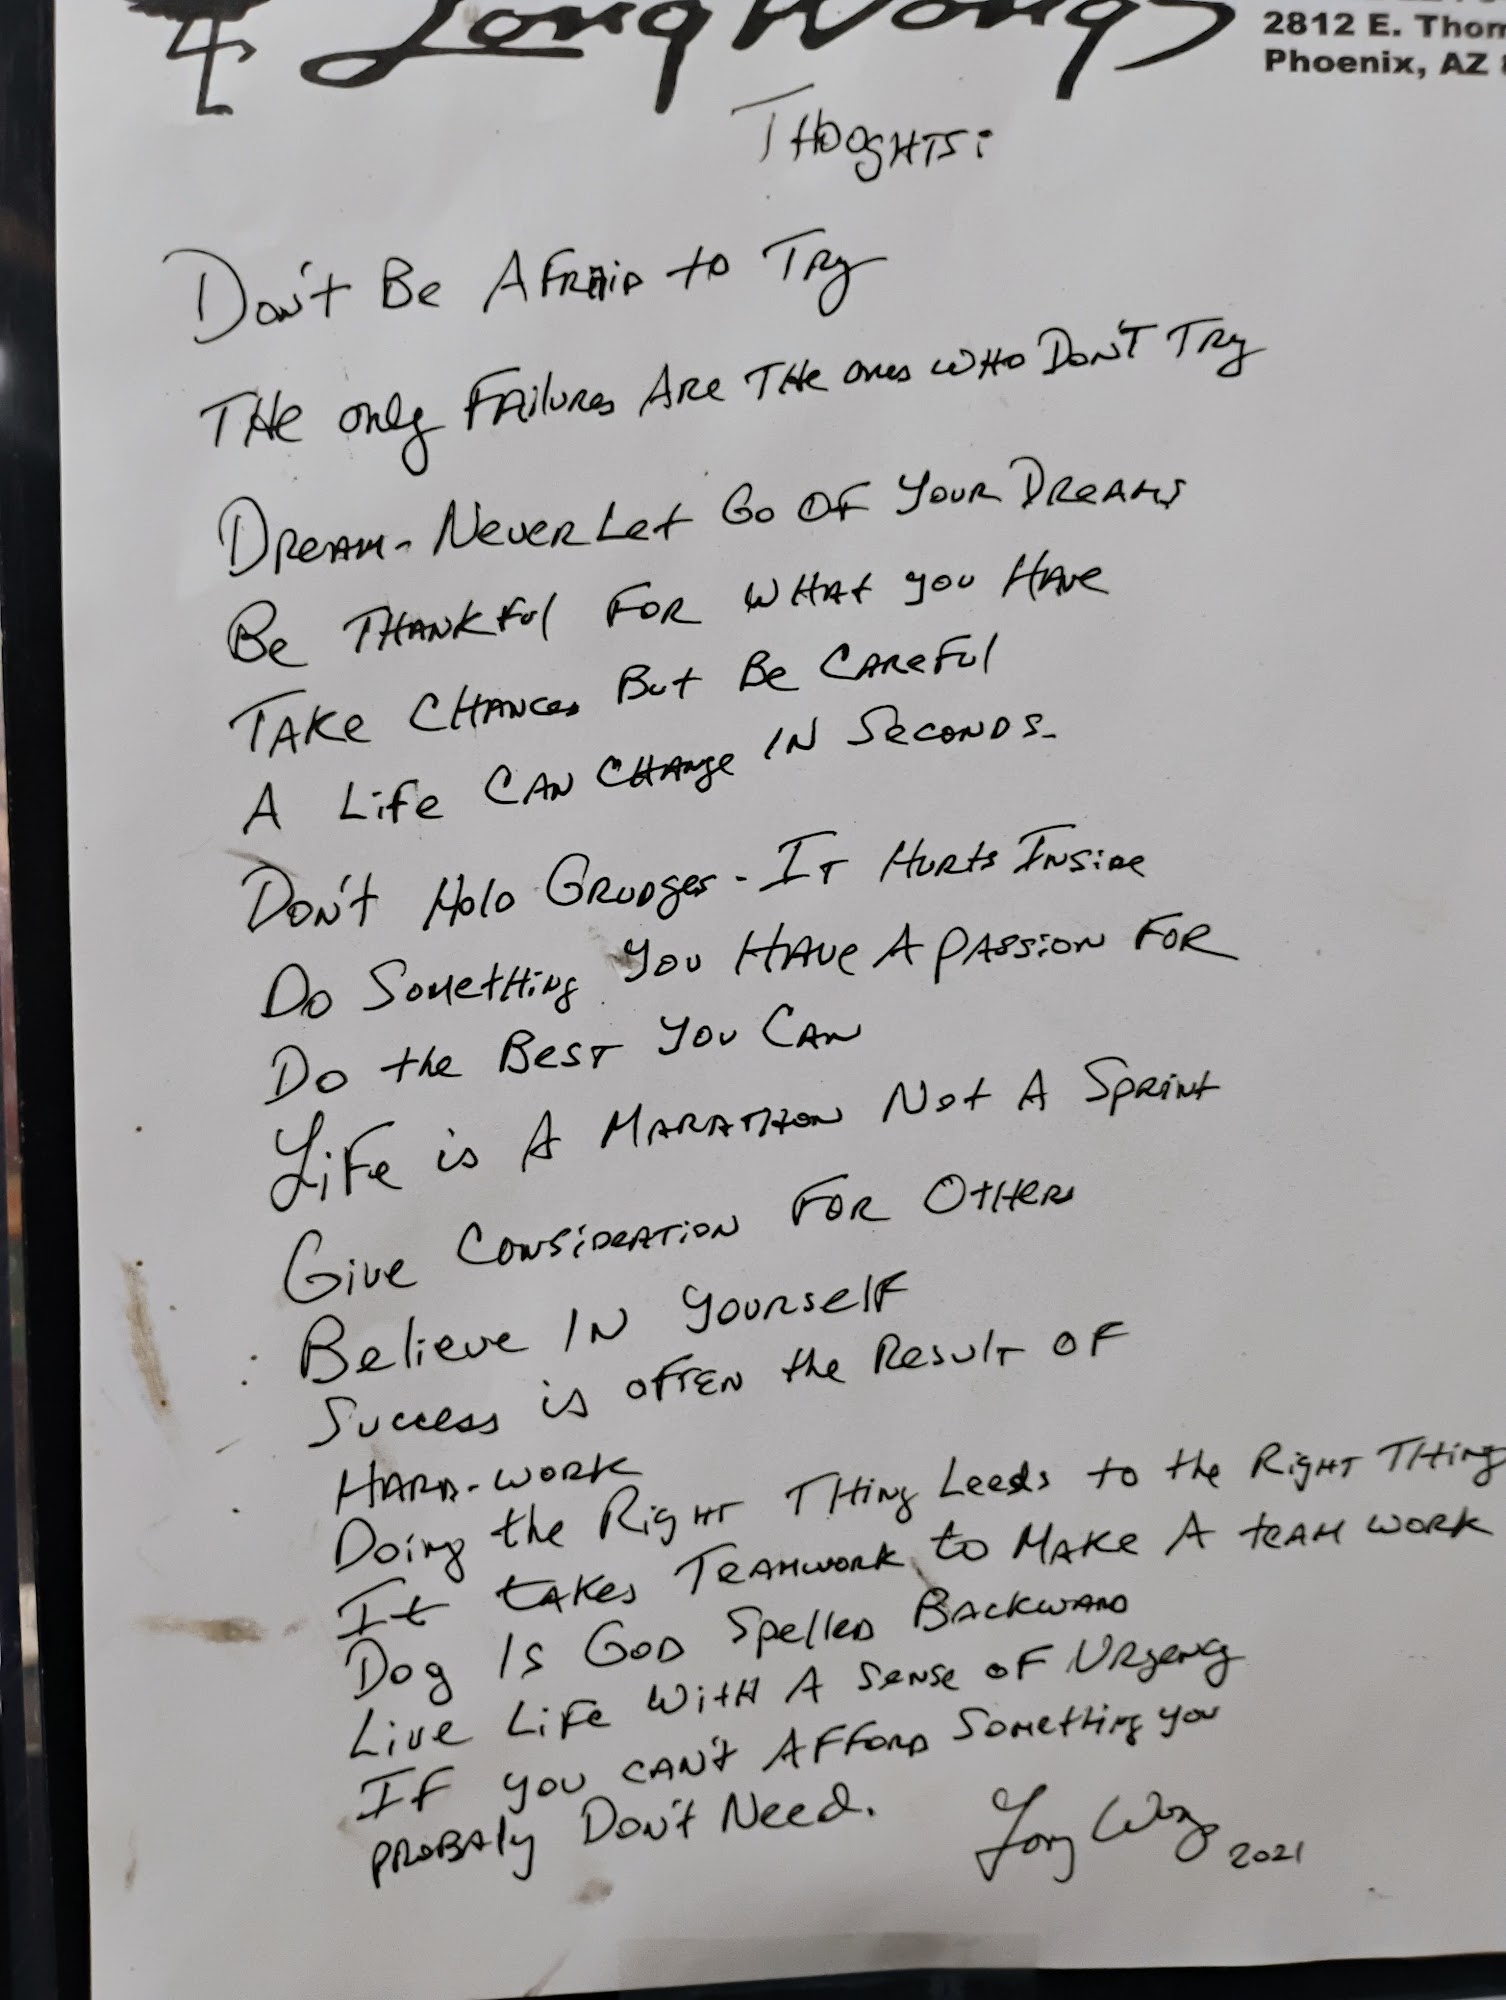 Long Wong's
2812 E. Thom
Phoenix, AZ
THOOGHTS:
Don't Be AFRAID to TRY
THe only FAilures ARe THe ones WHO DON'T TRY
DReAM - NeveR Let Go OF YOUR DReAMS
Be THANKFul FOR WHAt you HAve
TAKe CHANCes But Be CAReFul
A LiFe CAN CHANge IN SeCONDS.
DON't HolD GRUDges - IT HuRts INSiDe
Do SoMetHiNg YOU HAve A PASSiON FOR
Do the BesT YOU CAN
LiFe is A MARATHON Not A SpRiNt
Give CONSiDRATiON FOR OtHeRs
Believe IN YOURSelF
Success is oFTEN the ResulT oF
HARD-woRK
Doing the RigHT THing Leeds to the RigHT THing
It takes TeAMwoRK to MAKe A teAM woRK
Dog IS GOD SpelleD BACKwARD
Live LiFe WitH A SeNse oF URgeNcy
IF you CAN't AFFoRD SoMetHiNg you
PRoBAly DoN't Need.
Long Wong 2021